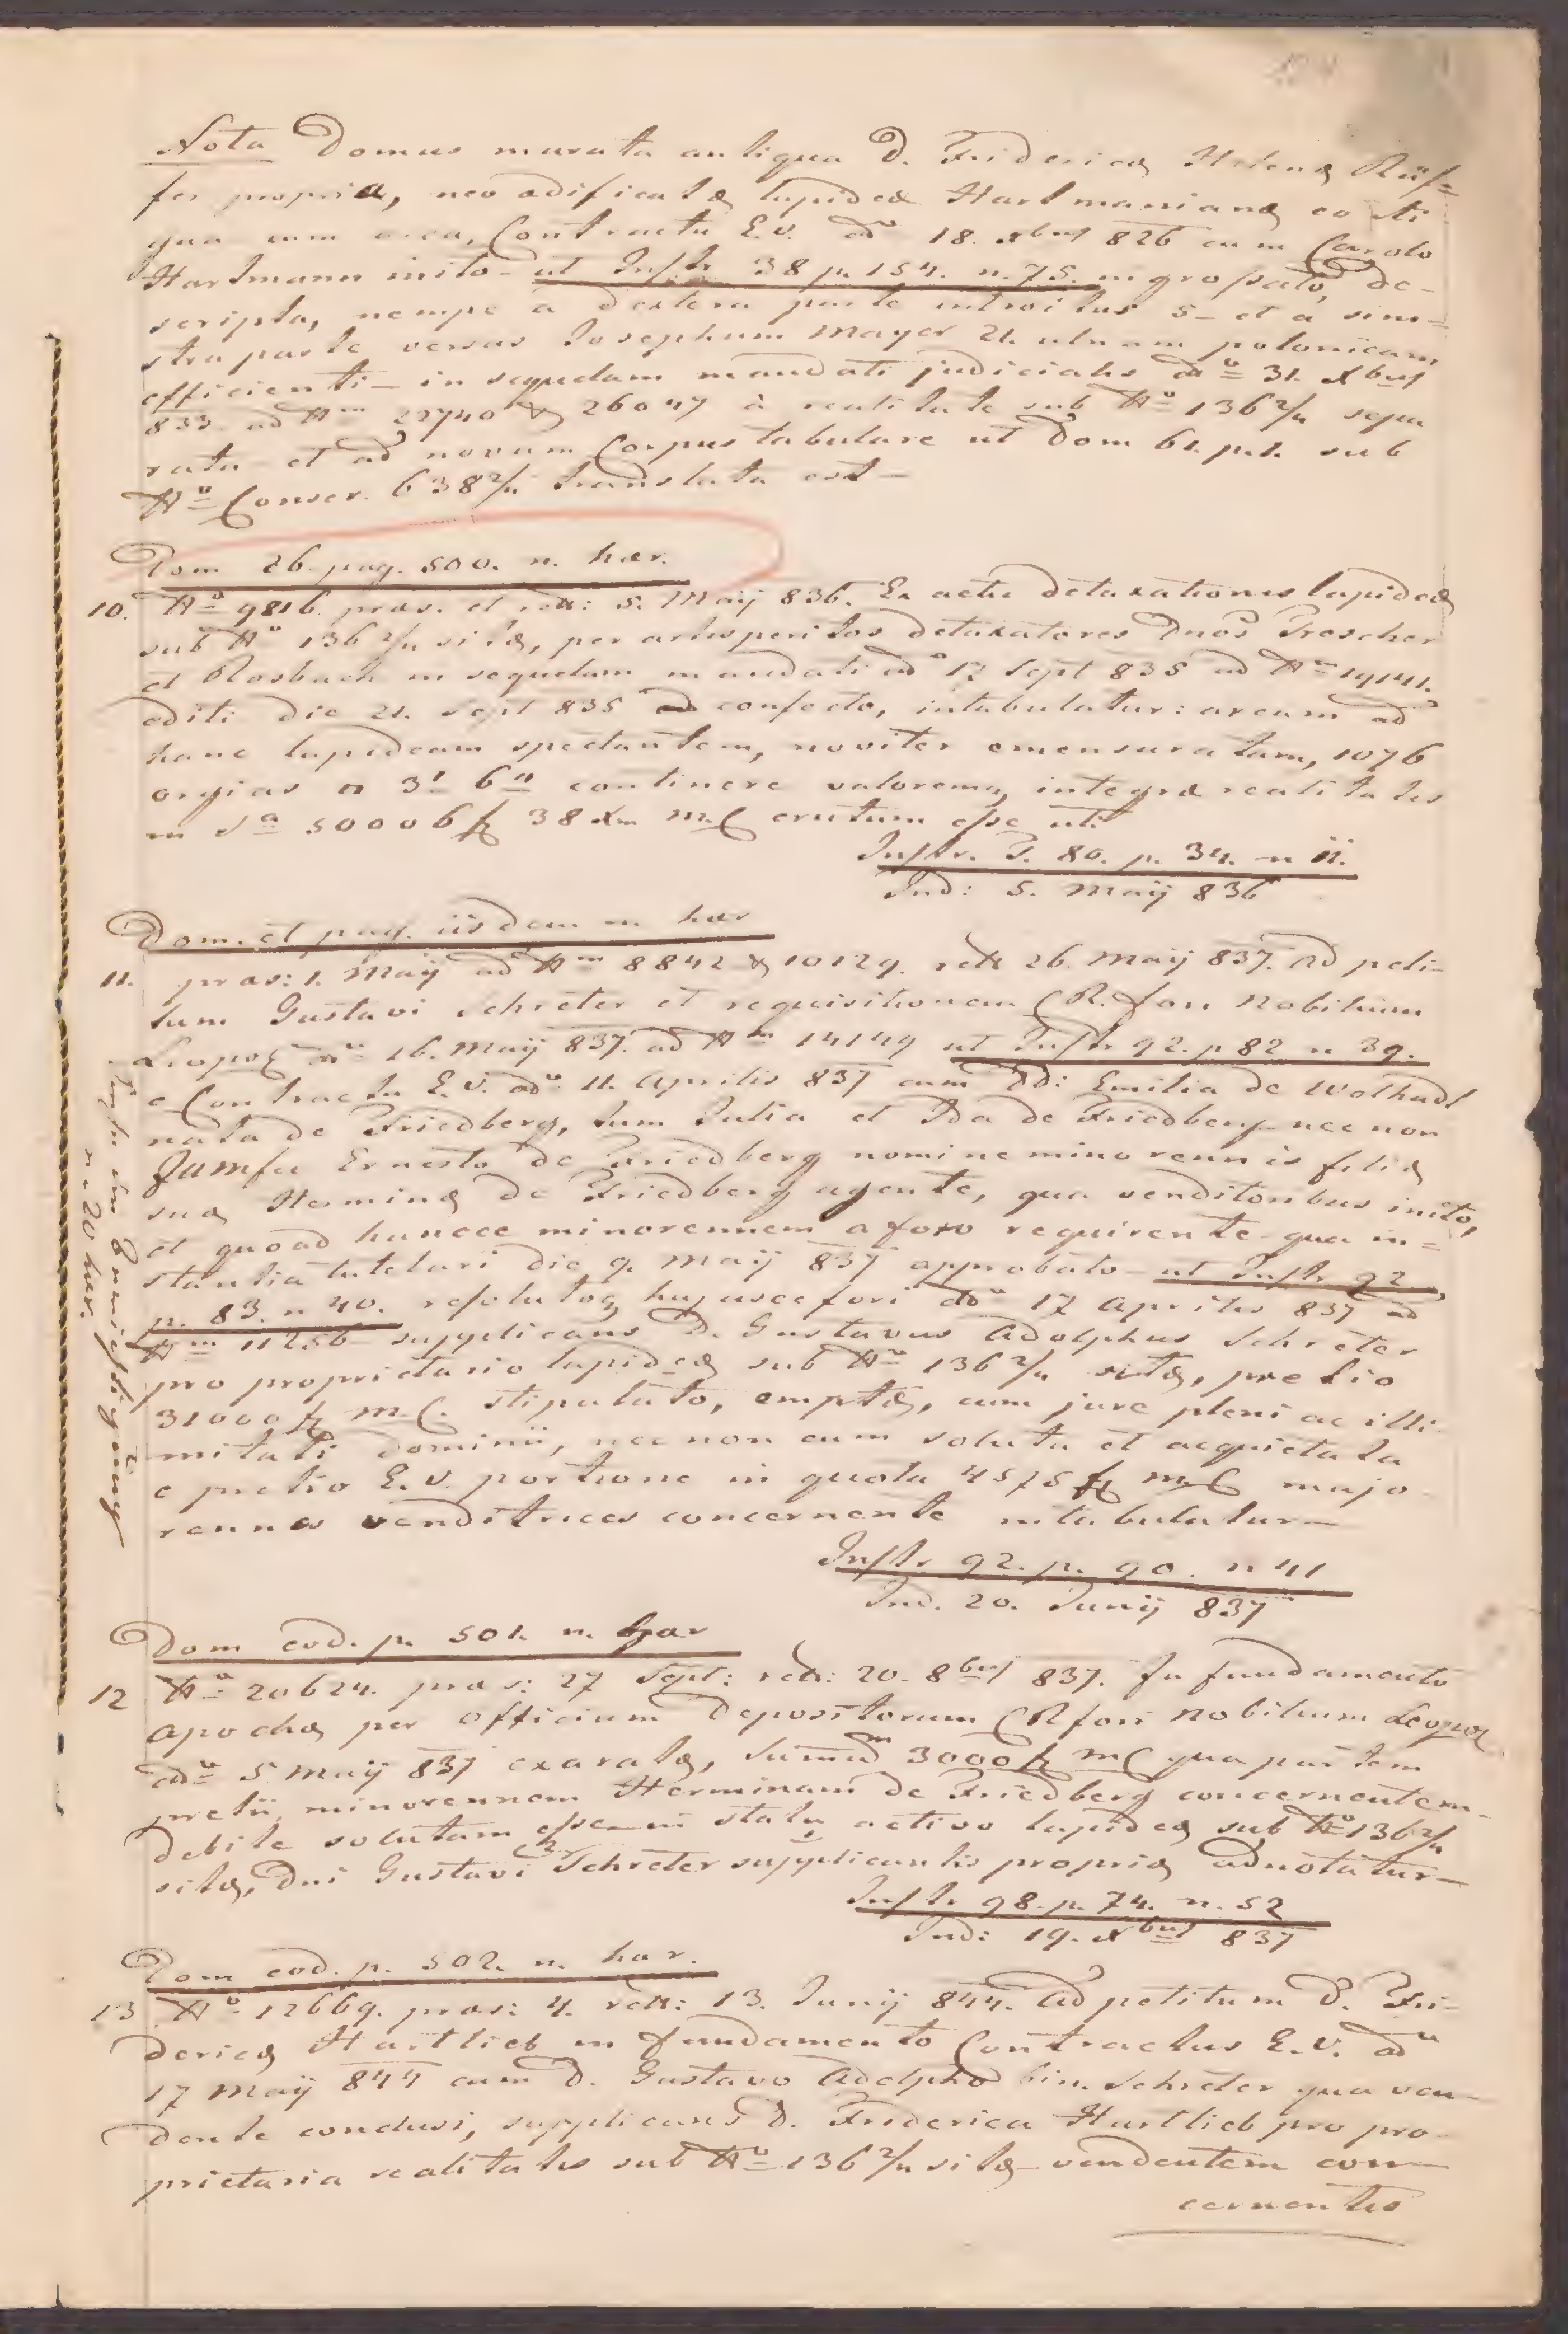 Nota Domus murata antiqua D. Friderica Helena Rüf=
fer propria, neo aedificatae lapideae Hartmanianae co
qua cum area, Contractu E.V. ddº 18. Xbris 826 cum Carolo
Hartmann inito – ut Instr. 38 p. 154. n. 75. ingrossato, de-
scripta, nempe a dextera parte introitus 5– et a sini=
stra parte versus Josephum Mayer 21. ulnam polonicam
efficienti – in sequelam mandati judicialis ddº 31. Xbris
833. ad Nm 22740 & 26047 à realitate sub Nº 136 2/4 sepa
rata – et ad novum Corpus tabulare ut Dom 61. p.1. sub
Nº Conscr. 638 2/4 translata est –
Dom 26. pag. 500. n. haer.
10. Nº 9816. praes. et rels: 5. Maij 836. Ex actu detaxationis lapideae
sub Nº 136 2/4 sitae, per artisperitos detaxatores Dnos Trescher
et Rosbach in sequelam mandati ddº 17 Sept 835 ad Nm 19141.
editi die 21. Sept 835 confecto, intabulatur: aream ad
hanc lapideam spectantem, noviter emensuratam, 1076
orgias □ 3' 6" continere valoremq integrae realitatis
in Sa 50006 f 38 Xr m.C erutum esse uti
Instr. T. 80. p. 34. n 11.
Ind: 5. Maij 836
Dom. et pag. iisdem n haer
11. praes: 1. Maij ad Nm 8842 & 10129. rels 26. Maij 837. Ad peti-
tum Gustavi Schreter et requisitionem CR. fori Nobilium
Leopol ddº 16. Maij 837. ad Nm 14149 ut Instr 92. p 82 n 39.
e Contractu E.V. ddº 11. Aprilis 837 cum DD: Emilia de Wolhadt
nata de Friedberg, tum Julia et Ida de Friedberg nec non
Ernesto de Friedberg nomine minorennis filiae
suae Herminae de Friedberg agente, qua venditoribus inito,
et quoad huncce minorennem a foro requirente qua in=
stantia tutelari die 9. Maij 837 approbato – ut Instr. 92
p. 83. n 40. resolutoq hujusce fori ddº 17 Aprilis 837 ad
Nm 11256 supplicans D. Gustavus Adolphus Schreter
pro proprietario lapideae sub Nº 136 2/4 sitae, pretio
31000 f m.C. stipulato, emptae, cum jure pleni ac illi-
mitati dominii, nec non cum soluta et acquietata
e pretio E.V. portione in quota 4575 f m.C majo-
rennes venditrices concernente intabulatur –
Instr 92. p. 90. n 41
Ind. 20. Junij 837
n. 20 haer.
Dom eod. p. 501. n. haer
12 Nº 20624. praes: 27 Sept: rels: 20. 8bris 837. In fundamento
apochae per officium Depositorum CR fori Nobilium Leopol
ddº 5 Maij 837 exaratae, Summam 3000 f mC qua partem
pretii, minorennem Herminam de Friedberg concernentem
debite solutam esse – in statu activo lapideae sub Nº 136 2/4
sitae, Dni Gustavi Schreter supplicantis propriae adnotatur –
Instr 98. p. 74. n. 52
Ind: 19. Xbris 837
Dom eod. p. 502. n. haer.
13 Nº 12669. praes: 4. rels: 13. Junij 844. Ad petitum D. Fri-
dericae Hartlieb in fundamento Contractus E.V. ddº
17 Maij 844 cum D. Gustavo Adolpho bin. Schreter qua ven-
dente conclusi, supplicans D. Friderica Hartlieb pro pro-
prietaria realitatis sub Nº 136 2/4 sitae – vendentem con-
cernentis